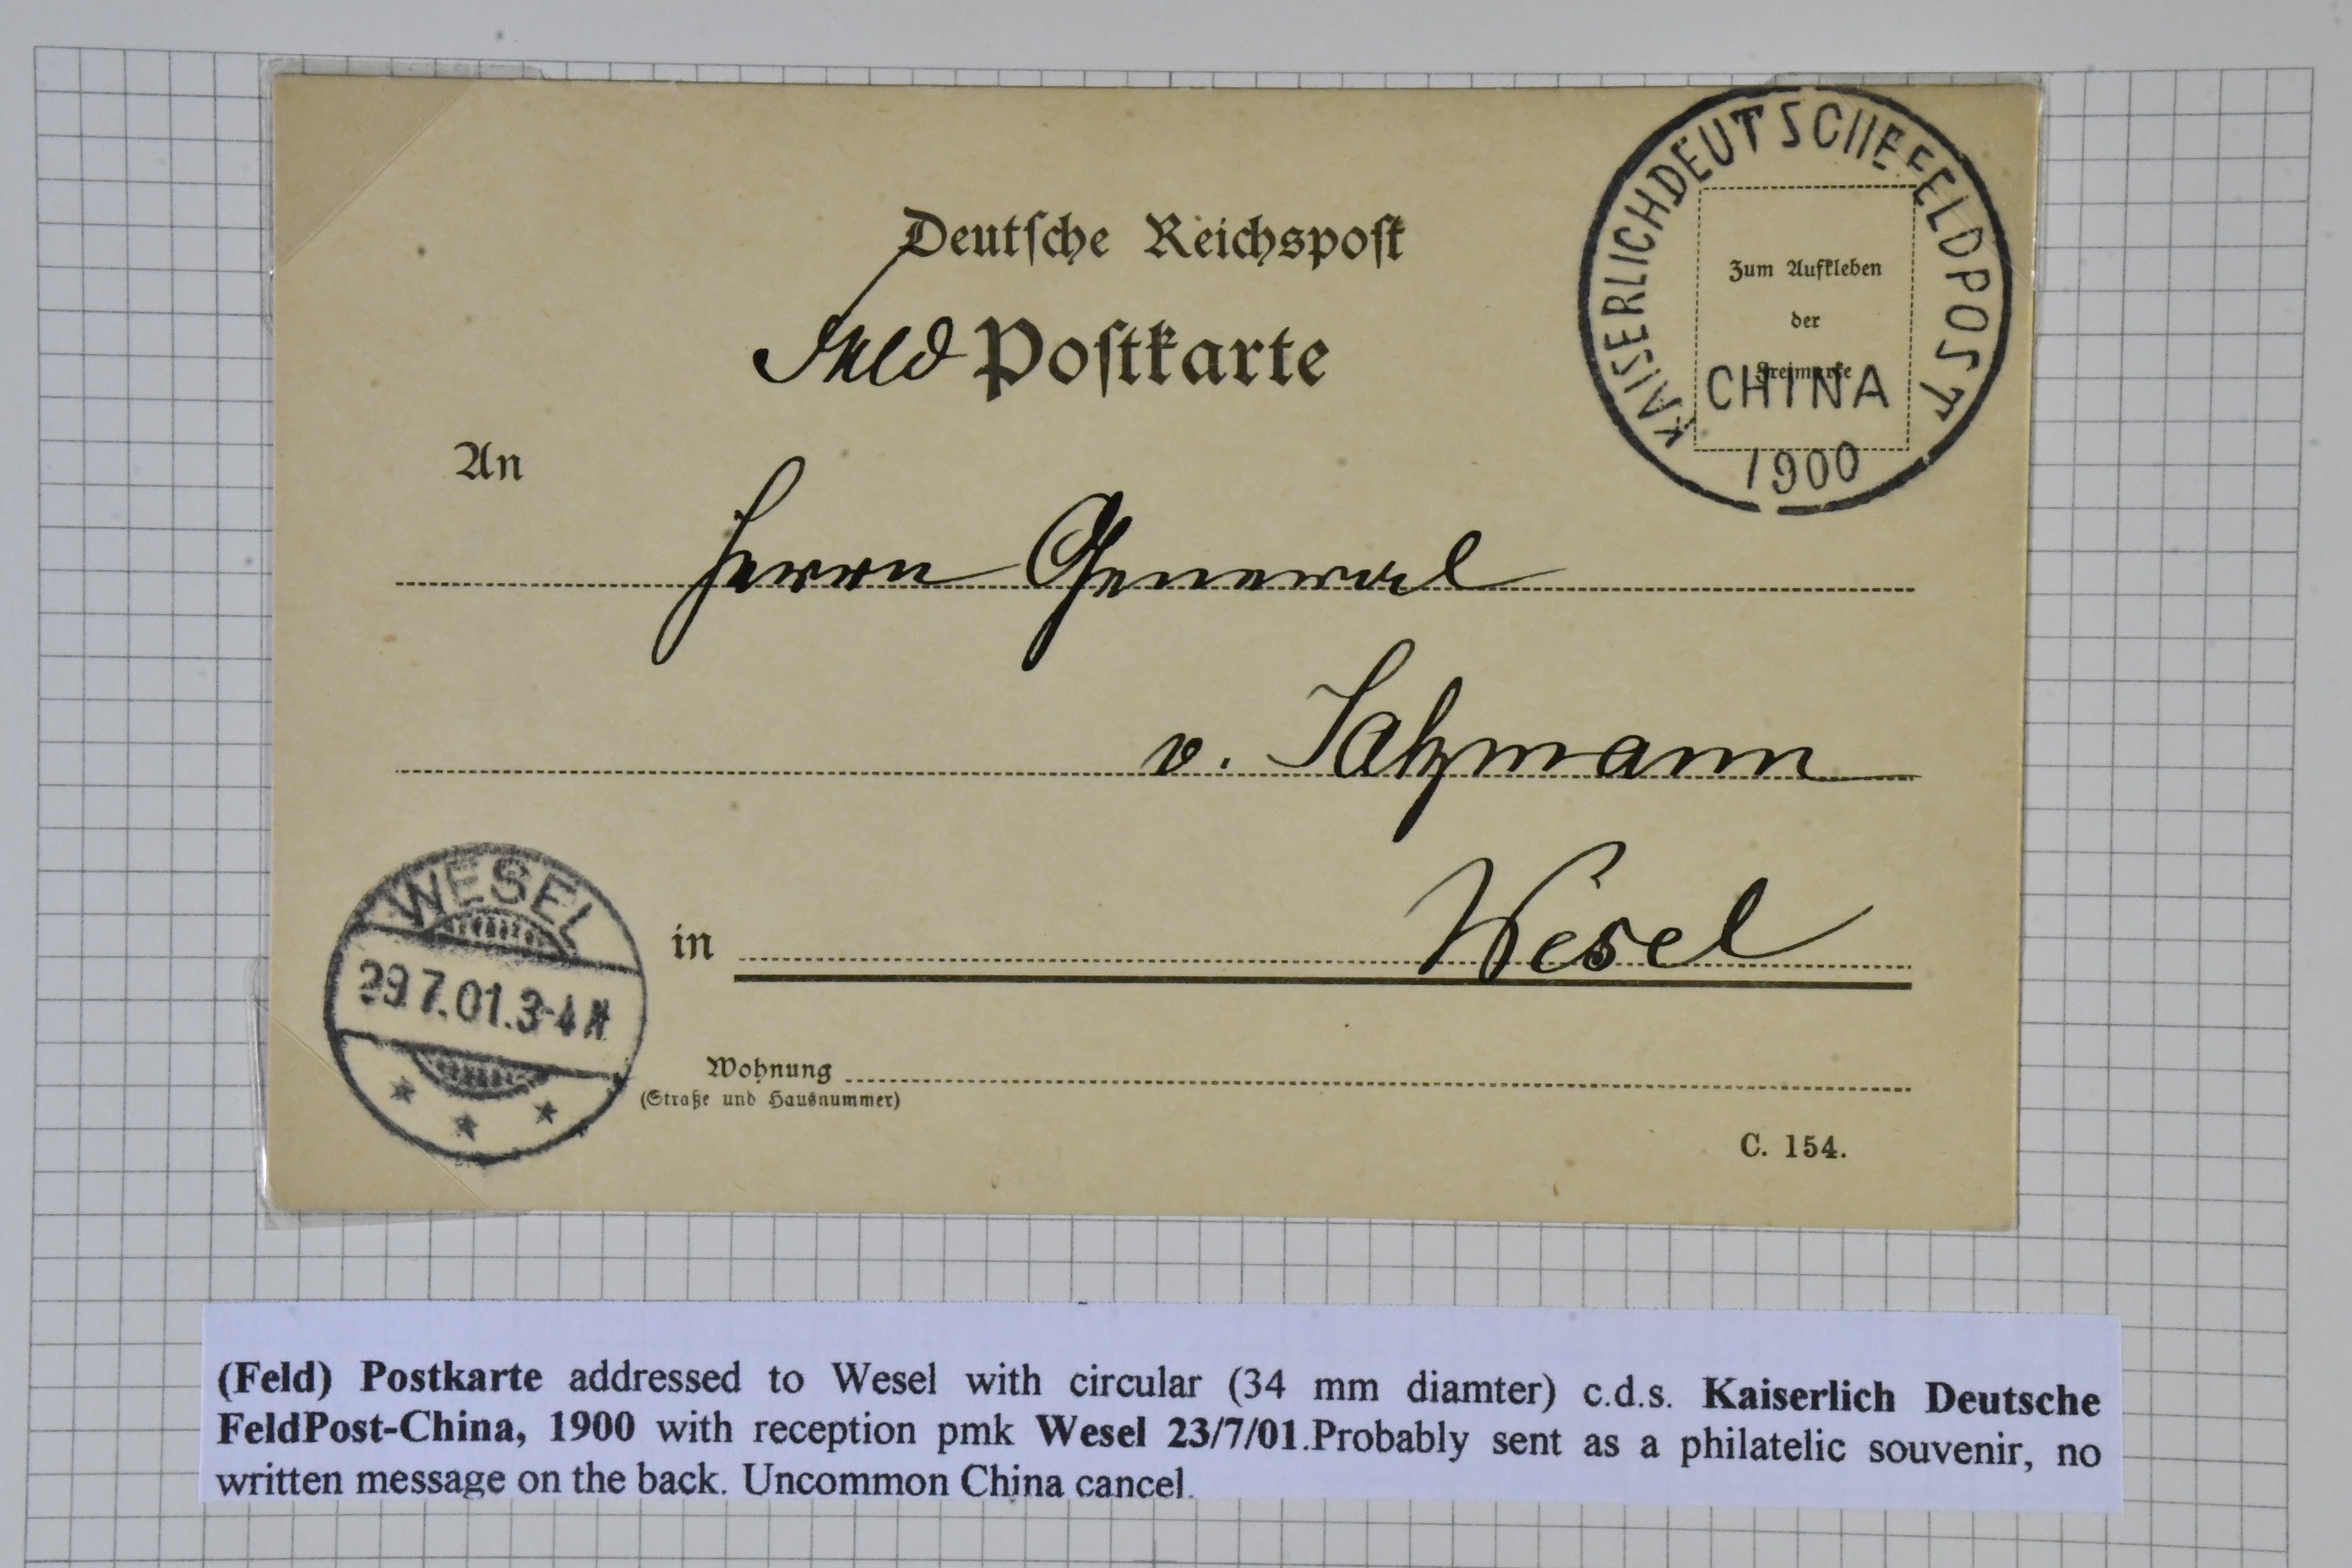 Deutsche Reichspost
Feld Postkarte
KAISERLICH DEUTSCHE FELDPOST
Zum Aufkleben
der
Freimarke
CHINA
1900
An
Herrn General
v. Salzmann
WESEL
29.7.01.3-4N
in Wesel
Wohnung
(Straße und Hausnummer)
C. 154.
(Feld) Postkarte addressed to Wesel with circular (34 mm diamter) c.d.s. Kaiserlich Deutsche
FeldPost-China, 1900 with reception pmk Wesel 23/7/01.Probably sent as a philatelic souvenir, no
written message on the back. Uncommon China cancel.